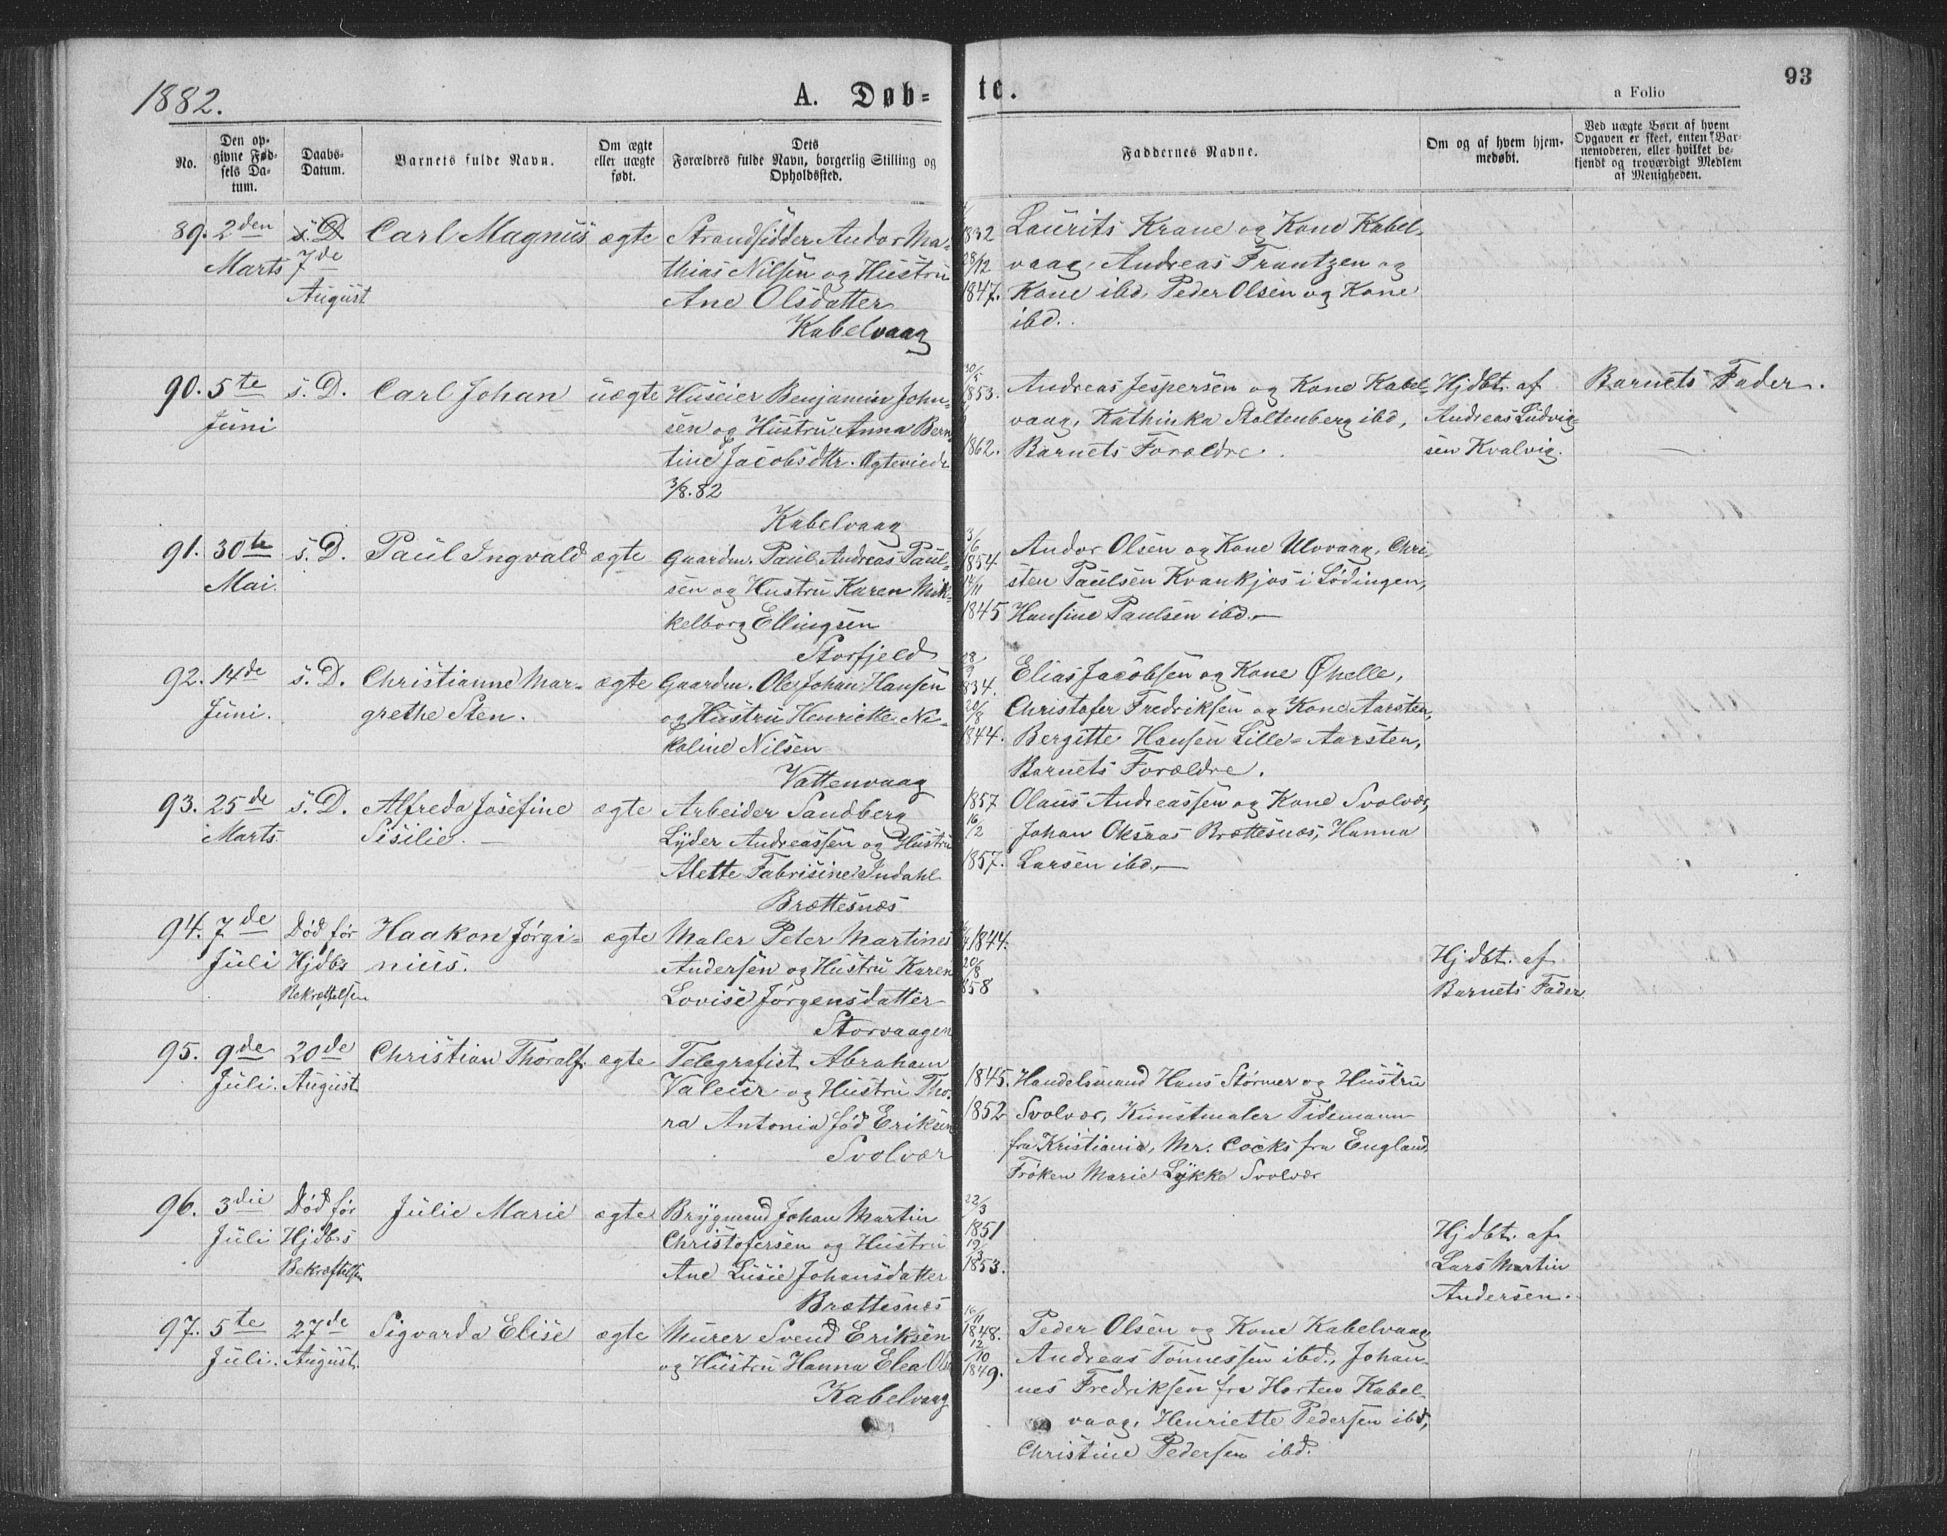 1882.
A. Døb-
te.
93
a Folio
No.
Den opgivne Fødsels Datum.
Daabs-Datum.
Barnets fulde Navn.
Om ægte eller uægte født.
Dets Forældres fulde Navn, borgerlig Stilling og Opholdssted.
Faddernes Navne.
Om og af hvem hjemmedøbt.
Ved uægte Børn af hvem Opgaven er skeet, enten Barnemoderen, eller hvilket bekjendt og troværdigt Medlem af Menigheden.
89. 2den s. D. Carl Magnus ægte Strandsidder Andor Ma- 1832 Laurits Krane og Kone Kabel-
Marts 7de thias Nilsen og Hustru 28/12 vaag, Andreas Frantzen og
August Ane Olsdatter 1847. Kone ibd, Peder Olsen og Kone
Kabelvaag ibd.
90. 5te s. D. Carl Johan uægte Huseier Benjamin John- 1853. Andreas Jespersen og Kone Kabel- Hjdbt. af Barnets Fader.
Juni sen og Hustru Anna Bern vaag, Kathinka Stoltenberg ibd, Andreas Ludvig-
tine Jacobsdtr. Ægteviede 1862. Barnets Forældre. sen Kvalvig.
3/8.82
Kabelvaag
91. 30te s. D. Paul Ingvald ægte Gaardm. Paul Andreas Paul- 3/6 1854 Andor Olsen og Kone Ulvvaag, Chri-
Mai. sen og Hustru Karen Mik- 14/11 sten Paulsen Kvankjos i Lødingen,
kelborg Ellingsen 1845 Hansine Paulsen ibd.
Storfjeld
92. 14de s. D. Christianne Mar- ægte Gaardm. Ole Johan Hansen 1834. Elias Jacobsen og Kone Øhelle,
Juni. grethe Sten. og Hustru Henriette Ni- 20/8 Christofer Fredriksen og Kone Aarsten,
koline Nilsen 1844. Bergitte Hansen Lille-Aarsten,
Vattenvaag Barnets Forældre.
93. 25de s. D. Alfreda Josefine ægte Arbeider Sandberg 1857 Olaus Andreassen og Kone Svolvær
Marts. Sisilie. Lyder Andreassen og Hustru 16/2 Johan Oksaas Brættesnæs, Hanna
Alette Fabrisine Indahl 1857. Larsen ibd.
Brættesnæs
94. 7de Død før Haakon Jørgi- ægte Maler Peter Martines 1844. Hjdbt. af
Juli Hjdbs nius. Andersen og Hustru Karen 20/8 Barnets Fader.
Bekræftelsen Lovise Jørgensdatter 1858
Storvaagen
95. 9de 20de Christian Thoralf. ægte Telegrafist Abraham
Juli. August Valeur og Hustru Tho- 1845. Handelsmand Hans Størmer og Hustru
ra Antonia fød Eriksen 1852 Svolvær, Kunstmaler Tidemann
Svolvær fra Kristiania, Mr. Cocks fra England,
Frøken Marie Lykke Svolvær
96. 3die Død før Julie Marie ægte Brygmand Johan Martin 22/3 1851 Hjdbt. af
Juli Hjdbs Christofersen og Hustru 19/3 Lars Martin
Bekræftelsen Ane Lusie Johansdatter 1853. Andersen.
Brættesnæs
97. 5te 27de Sigvarda Elise ægte Murer Svend Eriksen 16/11 1848. Peder Olsen og Kone Kabelvaag
Juli. August. og Hustru Hanna Elea Ols 12/10 Andreas Tønnessen ibd., Johan-
Kabelvaag 1849. nes Fredriksen fra Horten Kabel-
vaag, Henriette Pedersen ibd,
Christine Pedersen ibd.